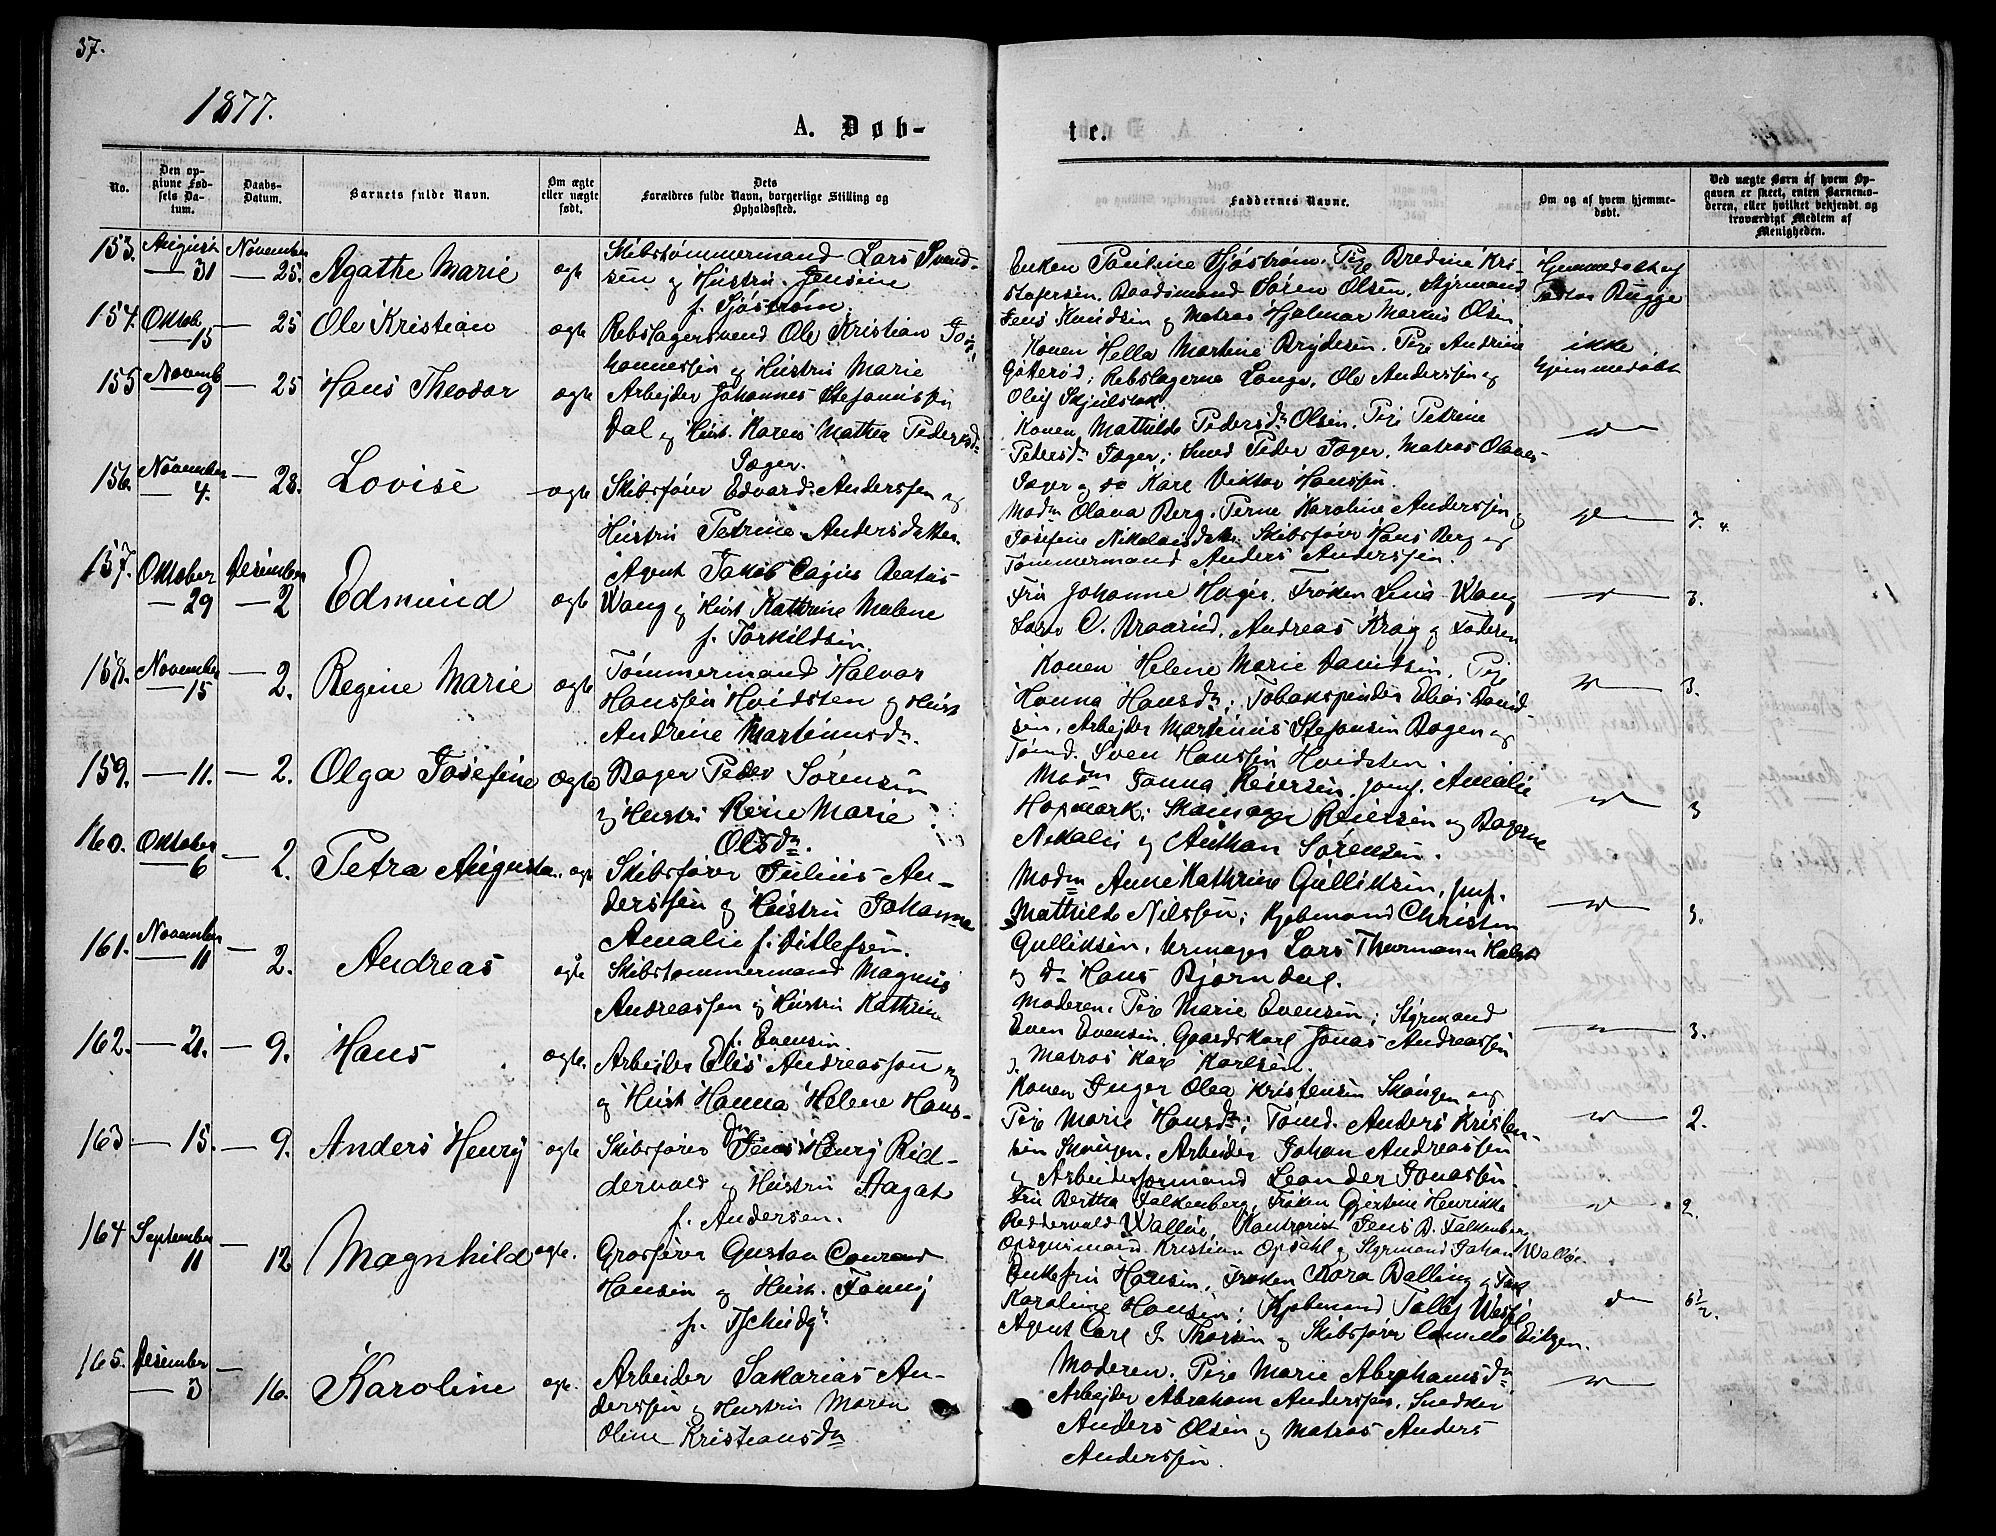 37.
1877.
A. Døb-
te.
No.
Den op-
givne Fød-
sels Da-
tum.
Daabs-
Datum.
Barnets fulde Navn.
Om ægte
eller uægte
født.
Dets
Forældres fulde Navn, borgerlige Stilling og
Opholdssted.
Faddernes Navne.
Om og af hvem hjemme-
døbt.
Ved uægte Børn af hvem Op-
gaven er skeet, enten Barnemo-
deren, eller hvilket bekjendt og
troværdigt Medlem af
Menigheden.
153. August 31 November 25. Agathe Marie ægte
Skibstømmermand Lars Svend-
sen og Hustru Jensine
f. Sjöström.
Enken Pauline Sjöström, Pige Bredine Kri-
stofersen, Baadsmand Søren Olsen, Styrmand
Jens Knudsen og Matros Hjalmar Markus Olsen
Hjemmedøbt af
Pastor Bugge
154. Oktob. 15 — 25 Ole Kristian ægte
Rebslagersvend Ole Kristian Jo-
hannessen og Hustru Marie
Konen Hella Martine Brydesen, Pige Andrine
Gåterød, Rebslagerne Lange, Ole Anderssen og
Oluf Skjelstak.
ikke
hjemmedøbt
155 Novemb. 9 — 25 Hans Theodor ægte
Arbejder Johannes Stefanussen
Dal og Hust. Karen Mathea Pedersd.
Jæger.
Konen Mathilde Pedersdr Olsen, Pige Petrine
Pedersdr Jæger, Smed Peder Jæger, Matros Olaves
Jæger og do Karl Viktor Hanssen.
156. November 4. — 28. Lovise ægte
Skibsfører Edvard Anderssen og
Hustru Petrine Andersdatter.
Madm Olava Berg, Perne Karoline Anderssen og
Josefine Nikolaisdatr. Skibsfører Hans Berg og
Tømmermand Anders Anderssen.
7.
157. Oktober 29 Desember 2 Edmund ægte
Agent Jakob Cajus Beatus
Wang og Hust. Kathrine Malene
f. Torkildsen.
Fru Johanne Hager, Frøken Lina Wang
Lars C. Braarud, Andreas Krag og Faderen
3.
158. November 15 — 2. Regine Marie ægte
Tømmermand Halvor
Hanssen Hvidsten og Hust
Andrine Martinusdr.
Konen Helene Marie Davidsen, Pige
Hanna Hansdr; Tobakspinder Elias David-
sen, Arbejder Martinus Stefansen Bogen og
Tømd. Sven Hanssen Hvidsten.
3.
159. — 11. — 2. Olga Josefine ægte
Bager Peder Sørensen
og Hustru Marie
Olsdr.
Madm Janna Reiersen, Jomf. Amalie
Hopmark; Skomager Reiersen og Bagerne
Nikolai og Anthon Sørensen.
3
160. Oktober 6 — 2. Petra Augusta ægte
Skibsfører Julius An-
derssen og Hustru Johanne
Amalie f. Ditlefsen.
Madm Anne Kathrine Gulliksen, Jmf.
Mathilde Nilssen; Kjøbmand Christen
Gulliksen, Urmager Lars Thurmann
og do Hans Bjørndal.
3.
161. November 11 — 2. Andreas ægte
Skibstømmermand Magnus
Andreassen og Hustru Kathrine
f. Evensen.
Moderen, Pige Marie Evensen; Styrmand
Even Evensen, Gaardskarl Jonas Andreassen
og Matros Karl Karlsen.
3.
162. — 21. — 9. Hans ægte.
Arbejder Elis Andreassen og
og Hust Hanna Helene Hans-
dr
Konen Inger Olea Kristensen Skougen og
Pige Marie Hansdr; Tømd. Anders Kristen-
sen Skougen, Arbeider Johan Andreassen
og Arbeidsformand Leander Jonassen.
2.
163 — 15. — 9. Anders Henry ægte
Skibsfører Jens Henry Rid-
dervold og Hustru Aagat
f. Andersen.
Fru Bertha Falkenberg, Frøken Gjertine Henrikke
Reddervold Walløe, Kontorist Jens B. Falkenberg
Opsynsmand Kristian Opdahl og Styrmand Johan Walløe.
2.
164 September 11 — 12 Magnhild ægte.
Grosserer Gustav Conrad
Hansen og Hust. Fanny
f. Tschudy
Enkefru Hansen, Frøken Thora Balling og Frøk
Karoline Hansen; Kjøbmand
Agent Carl J. Thorsen og Skibsfører Camillo Eitzen.
6½.
165. Desember 3 — 16. Karoline ægte.
Arbeider Sakarias An-
derssen og Hustru Maren
Oline Kristiansdr
Moderen, Pige Marie Abrahamsdr
Arbejder Abraham Anderssen, Snedker
Anders Olsen og Matros Anders
Anderssen.